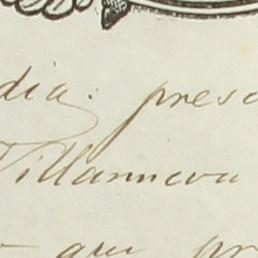 dia: presc
Villanueva
que pr